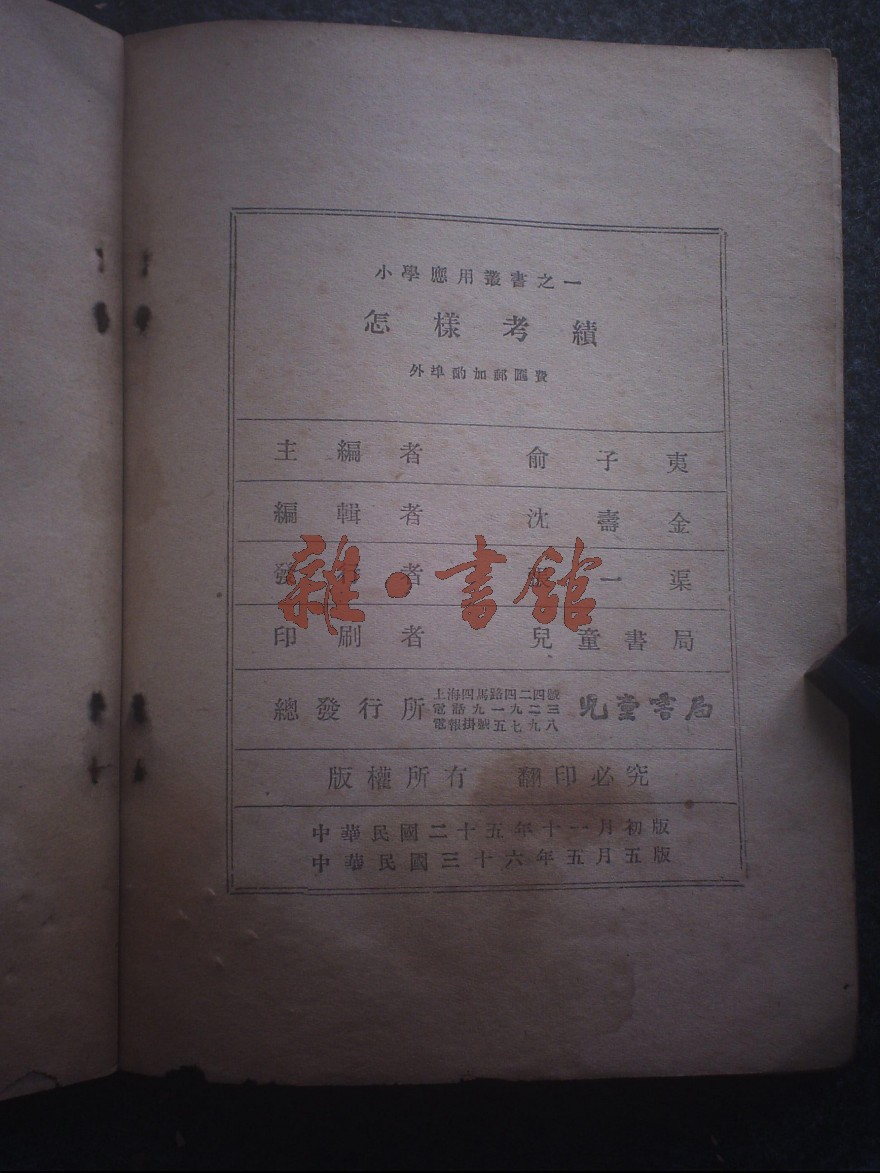 小學應用叢書之一
怎樣考績
外埠酌加郵匯費
主編者 俞子夷
編輯者 沈壽金
發行者 一渠
印刷者 兒童書局
雜·書館
總發行所 上海四馬路四二四號 兒童書局
電話九一九二三
電報掛號五七九八
版權所有 翻印必究
中華民國二十五年十一月初版
中華民國三十六年五月五版